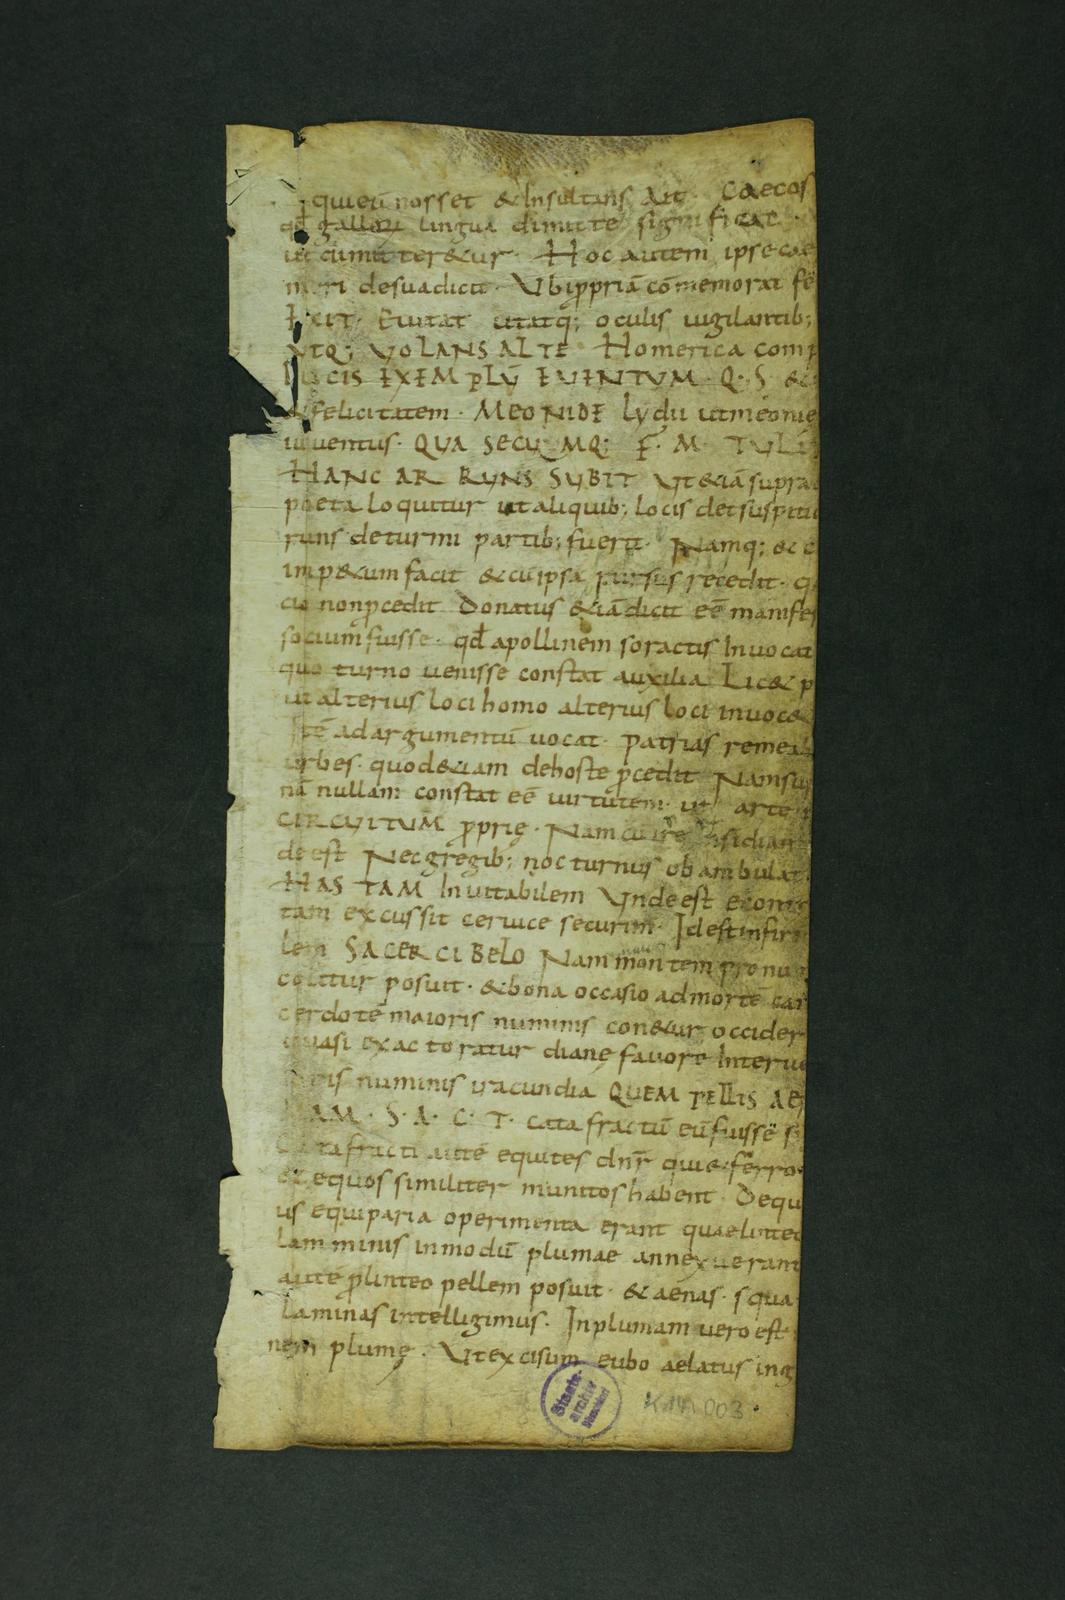 quieū nosset & Insultans Ait. Caecos
qđ galloꝝ lingua dimitte significat
cumit ter&ur. Hoc autem ipse cae
desuadicit. Ubi ꝓpriā cōmemorat fe
IXIT. Euitat utatq; oculis uigilantib;
UTQ; VOLANS ALTE Homerica comp
DUCIS EXEMPLŪ EUENTUM. Q. S. &
& felicitatem. MEONIDE lydii ut meonie
iuuentus. QUA SECUMQ; F. M. TULI
HANC ARRUNS SUBIT Ut &iā supra
poeta loquitur ut aliquib; locis det suspitio
runs de turni partib; fuerit. Namq; & c
imp&um facit & cū ipsa rursus recedit. q
cū non ꝓcedit Donatus &iā dicit eē manifes
socium fuisse. qđ apollinem soractis Inuocat
quo turno uenisse constat auxilia. Lic& p
ut alterius loci homo alterius loci inuoc&
tē ad argumentū uocat. patrias remea
urbes. quod &iam de hoste ꝓcedit Nam su
nā nullam constat eē uirtutem. ut arte
CIRCUITUM ꝓprię. Nam insidian
de est Nec gregib; nocturnus obambulat.
HASTAM Inuitabilem Unde est
tam excussit ceruice securim. Id est infir
lem SACER CIBELO Nam montem pro nu
colitur posuit. & bona occasio ad mortē ca
cerdotē maioris numinis con&ur occider
quasi exactoratur dianę fauore Interue
ris numinis iracundia QUEM PELLIS AE
AM. S. A. C. T. catafractū eū fuisse s
tafracti autē equites dnr̄ qui & ferro
et equos similiter munitos habent. De qu
us equiparia operimenta erant quae lintea
lamminis in modū plumae annexuerant
autē ꝓ linteo pellem posuit. & aenas. squa
laminas intelligimus. In plumam uero est
nem plumę. Ut excisum eubo aelatus ing
Staats-
archiv
K 19: 003